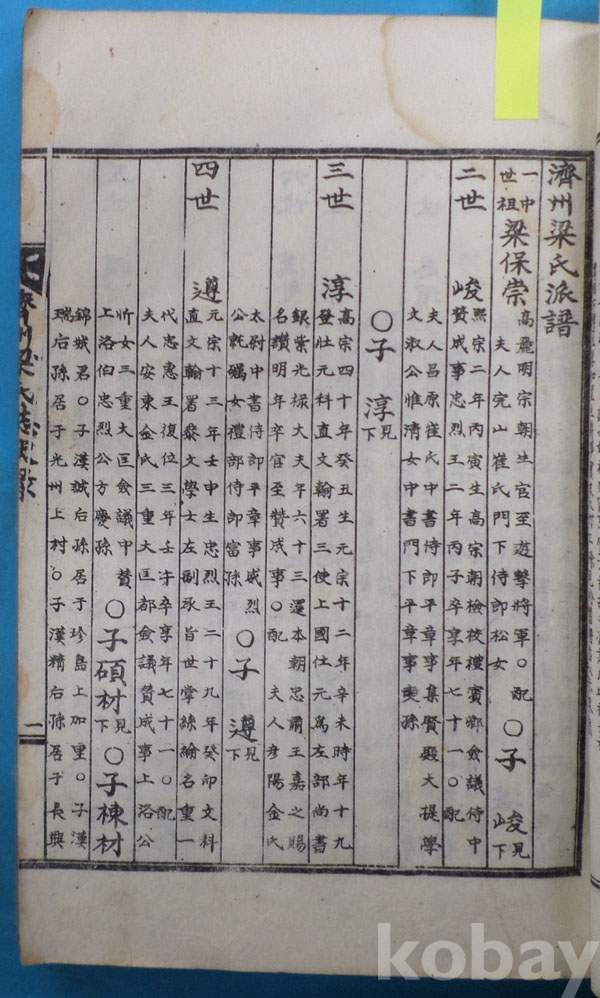 濟州梁氏派譜
一世中祖 梁保崇 高麗明宗朝生官至遊擊將軍○配夫人完山崔氏門下侍郎松女 ○子 峻見下
二世 峻 熙宗二年丙寅生高宗朝檢校禮賓卿僉議侍中贊成事忠烈王二年丙子卒享年七十一○配
夫人昌原崔氏中書侍郎平章事集賢殿大提學文淑公惟清女中書門下平章事奭孫
○子 淳見下
三世 淳 高宗四十年癸丑生元宗十二年辛未時年十九登壯元科直文翰署三使上國仕元為左部尚書
銀紫光祿大夫年六十三還本朝忠肅王嘉之賜名讚明年卒官至贊成事○配 夫人彥陽金氏
太尉中書侍郎平章事威烈公就礪女禮部侍郎富孫 ○子 遵見下
四世 遵 元宗十三年壬申生忠烈王二十九年癸卯文科直文翰署黍文學士左副承旨世掌絲綸名重一
代忠惠王復位三年壬午卒享年七十一○配夫人安東金氏三重大匡都僉議贊成事上洛公
忻女三重大匡僉議中贊上洛伯忠烈公方慶孫 ○子碩材見下 ○子棟材
錦城君○子漢城后孫居于珍島上加里○子漢瑞后孫居于光州上村○子漢精后孫居于長興
一
kobay